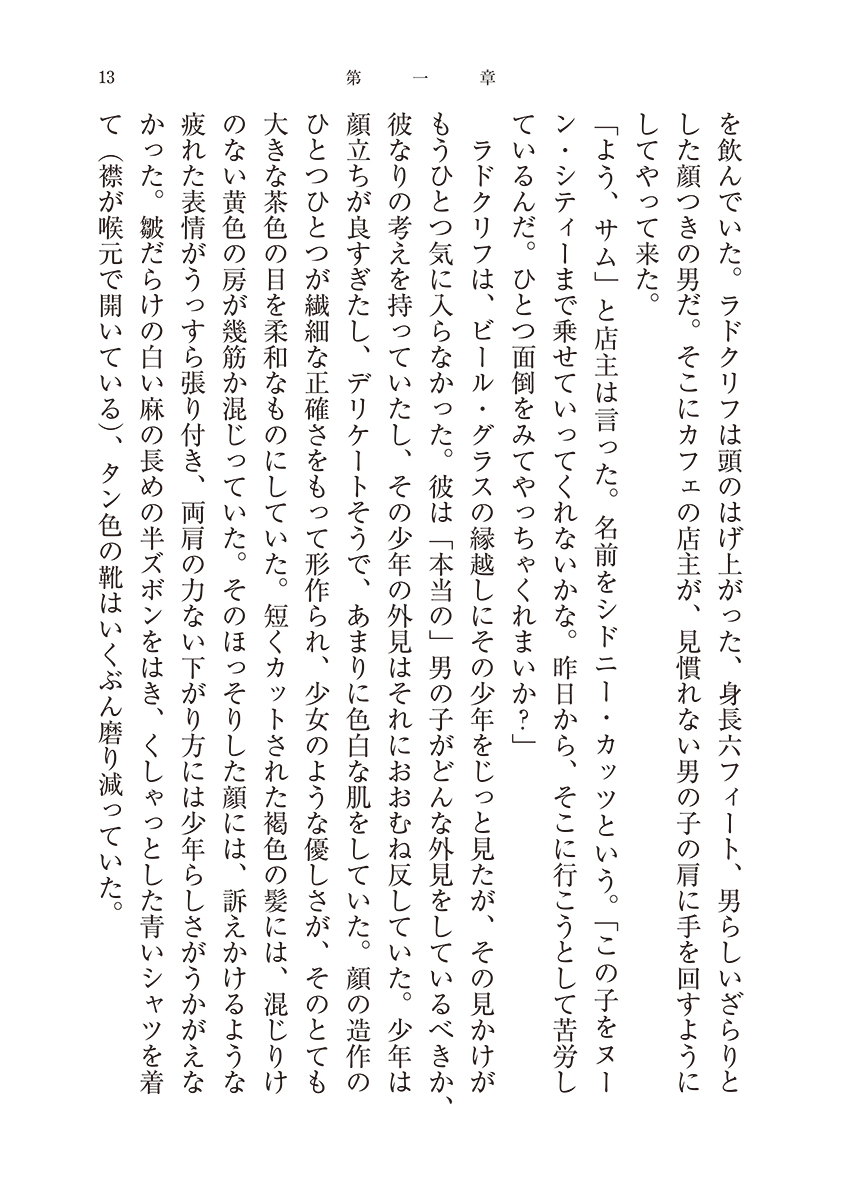 13
第一章
を飲んでいた。ラドクリフは頭のはげ上がった、身長六フィート、男らしいざらりと
した顔つきの男だ。そこにカフェの店主が、見慣れない男の子の肩に手を回すように
してやって来た。
「よう、サム」と店主は言った。名前をシドニー・カッツという。「この子をヌー
ン・シティーまで乗せていってくれないかな。昨日から、そこに行こうとして苦労し
ているんだ。ひとつ面倒をみてやっちゃくれまいか？」
ラドクリフは、ビール・グラスの縁越しにその少年をじっと見たが、その見かけが
もうひとつ気に入らなかった。彼は「本当の」男の子がどんな外見をしているべきか、
彼なりの考えを持っていたし、その少年の外見はそれにおおむね反していた。少年は
顔立ちが良すぎたし、デリケートそうで、あまりに色白な肌をしていた。顔の造作の
ひとつひとつが繊細な正確さをもって形作られ、少女のような優しさが、そのとても
大きな茶色の目を柔和なものにしていた。短くカットされた褐色の髪には、混じりけ
のない黄色の房が幾筋か混じっていた。そのほっそりした顔には、訴えかけるような
疲れた表情がうっすら張り付き、両肩の力ない下がり方には少年らしさがうかがえな
かった。皺だらけの白い麻の長めの半ズボンをはき、くしゃっとした青いシャツを着
て（襟が喉元で開いている）、タン色の靴はいくぶん磨り減っていた。